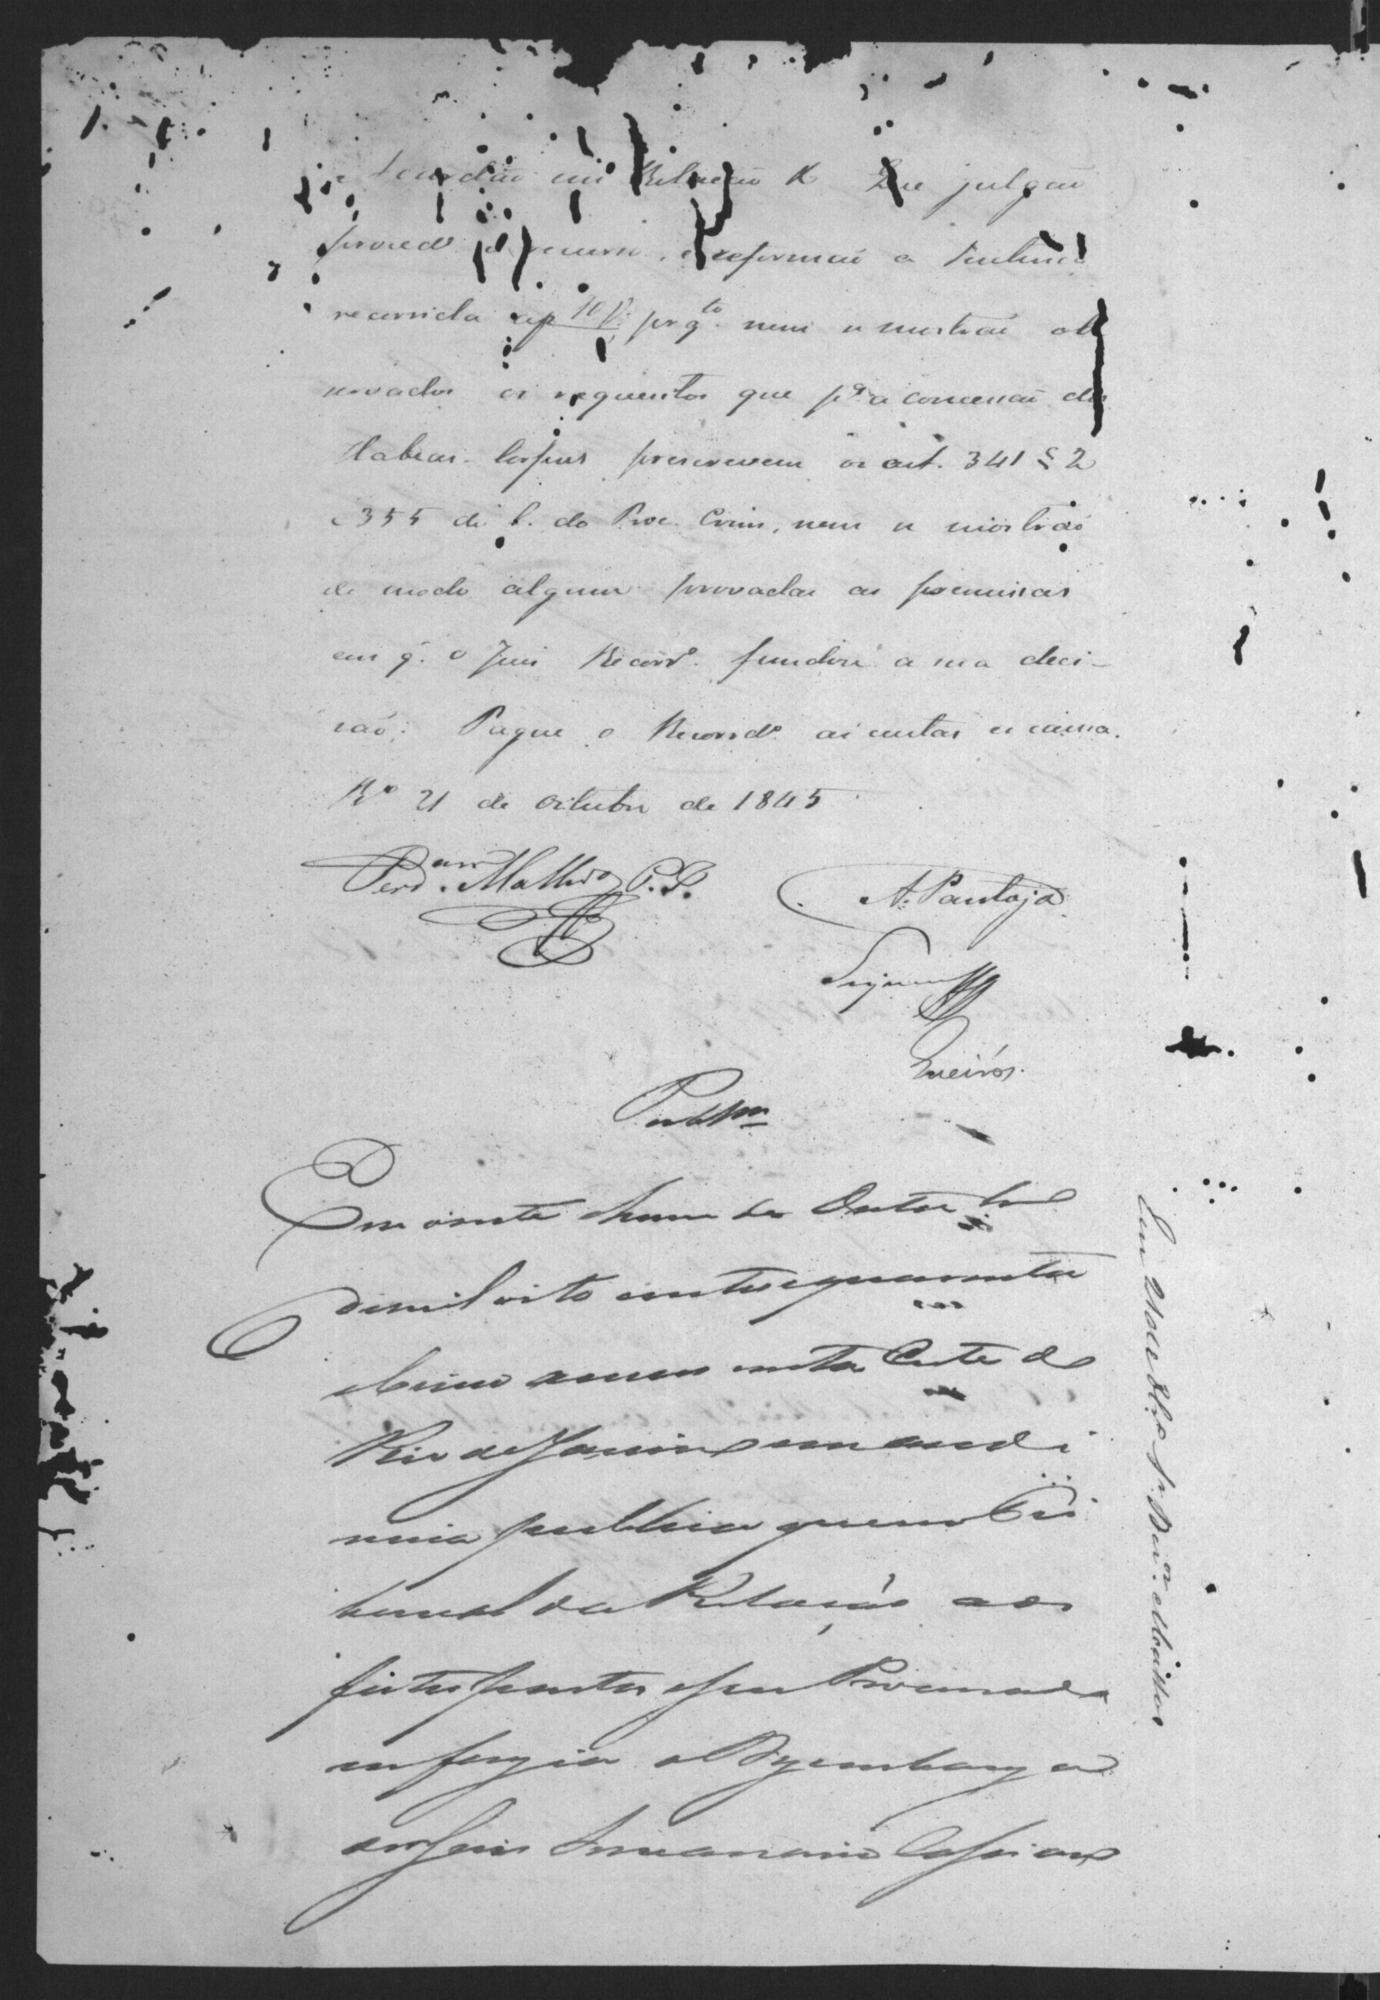 Acordão em Relação &. Que julgão
proced. o recurso, e reformão a sentença
recorrida ap 10 f. porq.to nem se mostrão ob
servados os requesitos que p.a a concessão de
Habeas-Corpus prescrevem os art. 341 § 2
e 355 do C. do Proc. Crim., nem se mostrão
de modo algum provadas as premissas
em q. o Juis Recorr.o fundou a sua deci-
são: Pague o Recorrd.o as custas e causa.
R.o 21 de Outubro de 1845
Mattos P. I.
A. Pantoja
Siqueira
Queirós.
Publ.am
Em vinte hum de Outubro
de mil oito centos e quarenta
e cinco annos nesta Corte do
Rio de Janeiro em audi
encia publica que no Tri
bunal da Relação aos
feitos partes e seus Procurado
res fazia o Dezembarga
dor Juis Semanario Cassiano